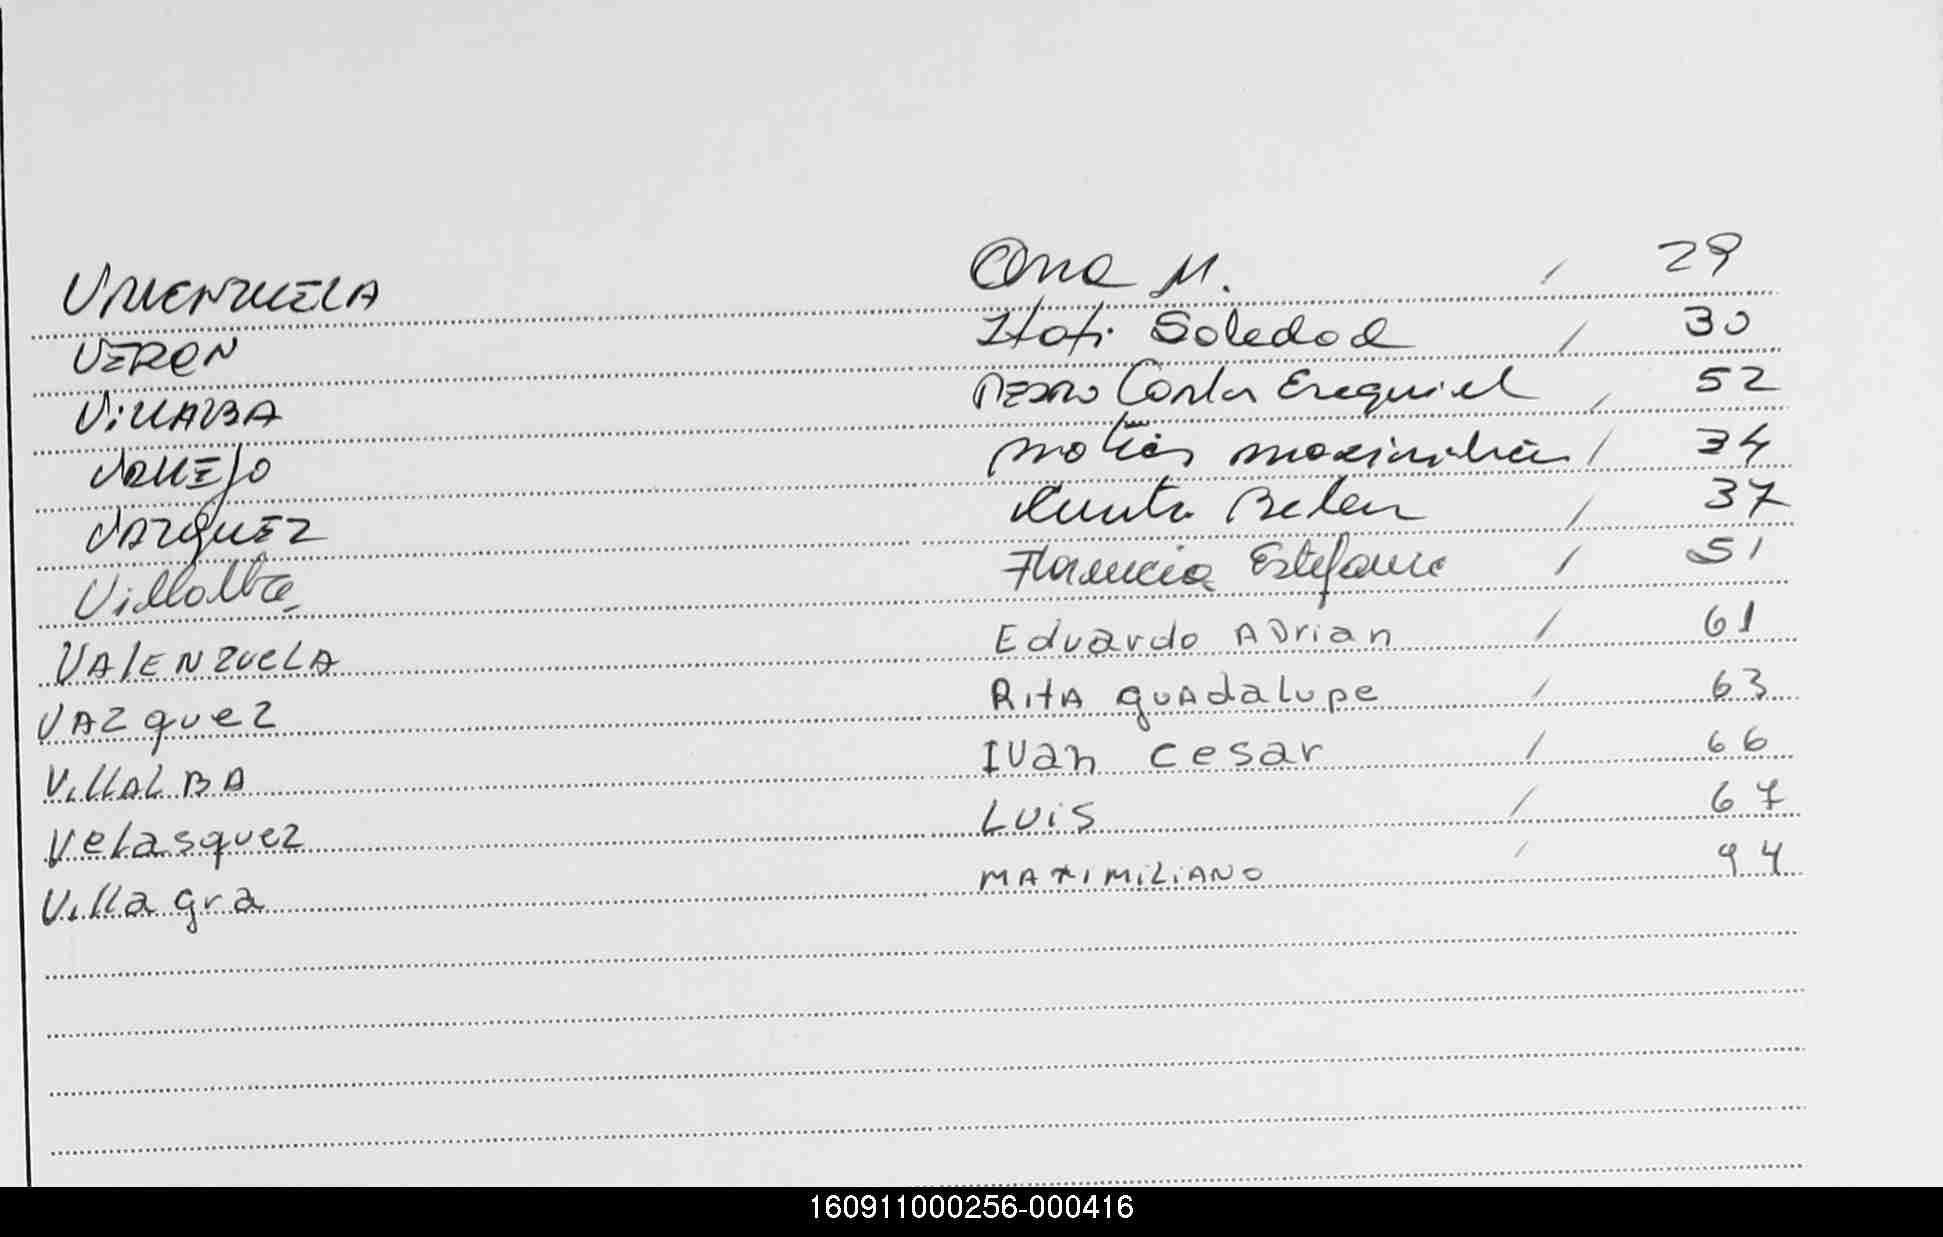 VALLENZUELA Ana M. / 29
VERON Itati Soledad / 30
VillALBA PEDRO Carlos Ezequiel / 52
VALLEJO Matias Maximilian / 34
VAZQUEZ Belen / 37
Villalba Florencia Estefania / 51
VAlENZUELA Eduardo ADrian / 61
VAZquez RitA guAdaLupe / 63
VillALBA IVan cesar / 66
Velasquez LUiS / 67
Villagra MAXIMILIANO / 94
160911000256-000416